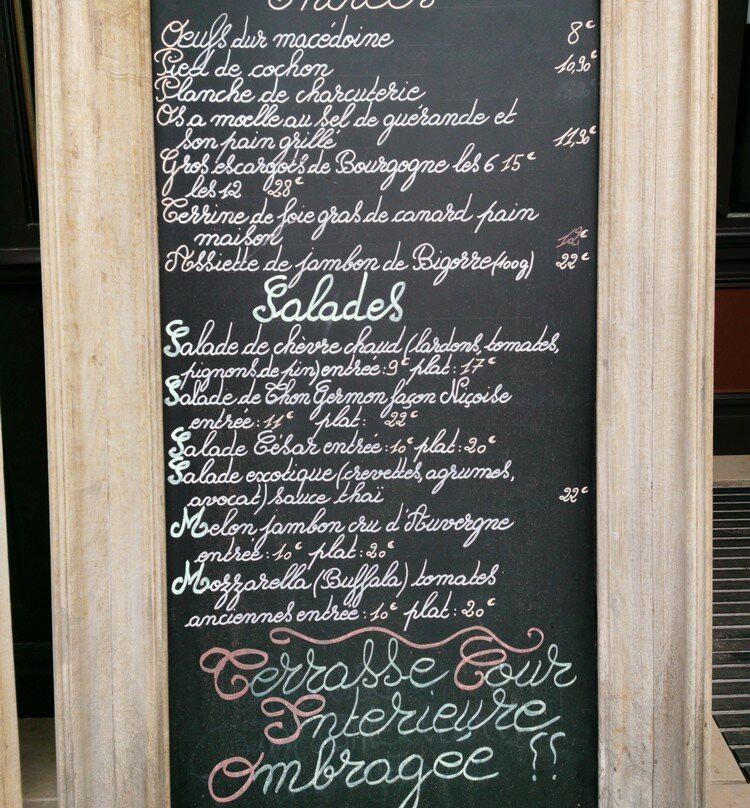 Entrées
Œufs dur macédoine 8€
Pied de cochon 10,90€
Planche de charcuterie
Os a moelle au sel de guérande et
son pain grillé 11,90€
Gros escargots de Bourgogne les 6 15€
les 12 28€
Terrine de foie gras de canard pain
maison 12€
Assiette de jambon de Bigorre (100g) 22€
Salades
Salade de chèvre chaud (lardons, tomates,
pignons de pin) entrée : 9€ plat : 17€
Salade de Thon Germon façon Niçoise
entrée : 11€ plat : 22€
Salade César entrée : 10€ plat : 20€
Salade exotique (crevettes, agrumes,
avocat) sauce thaï 22€
Melon jambon cru d'Auvergne
entrée : 10€ plat : 20€
Mozzarella (Buffala) tomates
anciennes entrée : 10€ plat : 20€
Terrasse Cour
Interieure
Ombragée !!